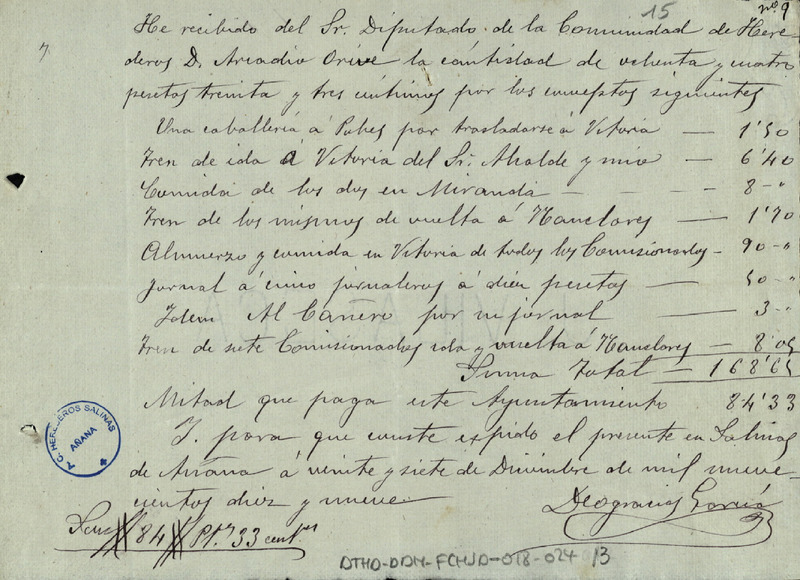 15
nº 9
He recibido del Sr. Diputado de la Comunidad de Here-
deros D. Arcadio Orive la cántidad de ochenta y cuatro
pesetas treinta y tres céntimos por los conceptos siguientes
Una caballeria á Pobes por trasladarse á Vitoria — 1'50
Tren de ida á Vitoria del Sr. Alcalde y mio — 6'40
Comida de los dos en Miranda — 8 - "
Tren de los mismos de vuelta á Nanclares — 1'70
Almuerzo y comida en Vitoria de todos los Comisionados - 90 - "
Jornal á cinco jornaleros á diez pesetas — 50 - "
Idem Al por su jornal — 3 - "
Tren de siete Comisionados ida y vuelta á Nanclares — 8'05
Suma Total — 168'65
Mitad que paga este Ayuntamiento 84'33
Y para que conste expido el presente en Salinas
de Añana á veinte y siete de Diciembre de mil nueve-
cientos diez y nueve
Deogracias García
Son # 84 # Pts. 33 cent.
A. C. HEREDEROS SALINAS
AÑANA
DTHD-DDM-FCHJD-018-024 13